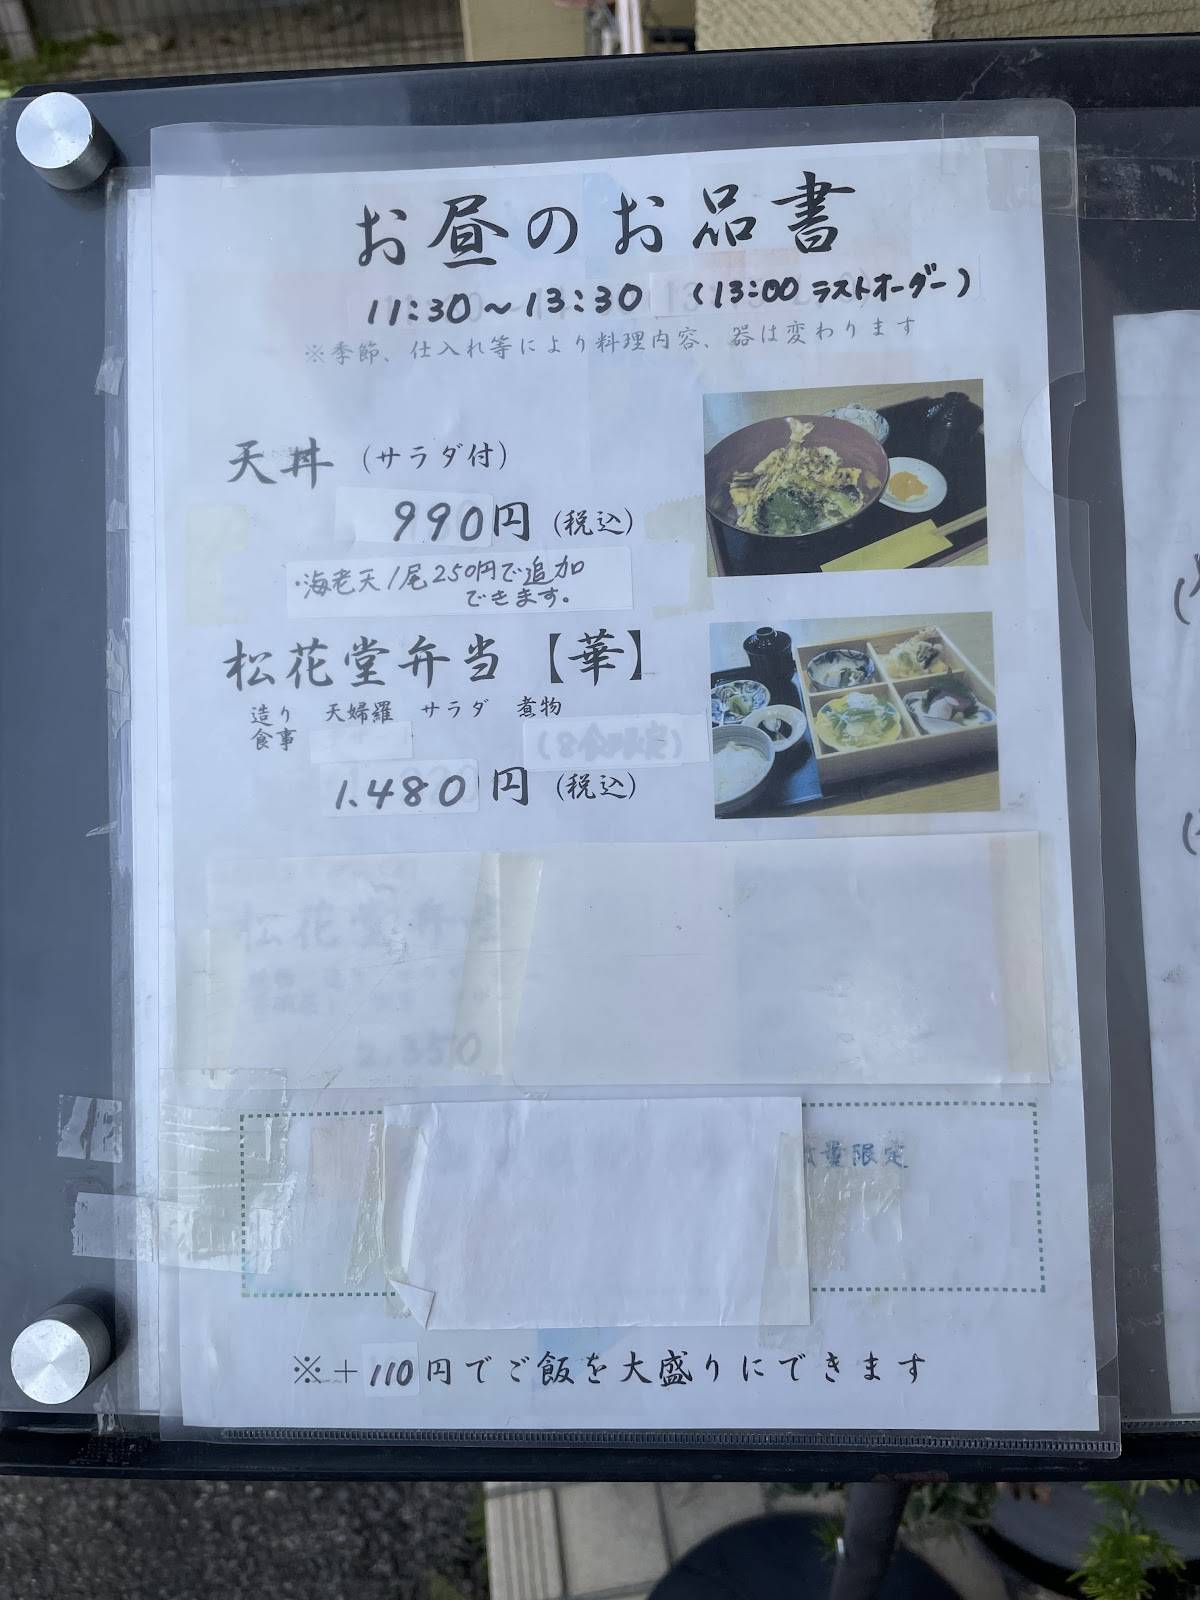 お昼のお品書
11:30～13:30 (13:00 ラストオーダー)
※季節、仕入れ等により料理内容、器は変わります
天丼 (サラダ付)
990円 (税込)
・海老天1尾250円で追加
できます。
松花堂弁当【華】
造り 天婦羅 サラダ 煮物
食事
(8食限定)
1.480円 (税込)
松花堂弁当
2.350
数量限定
※＋110円でご飯を大盛りにできます